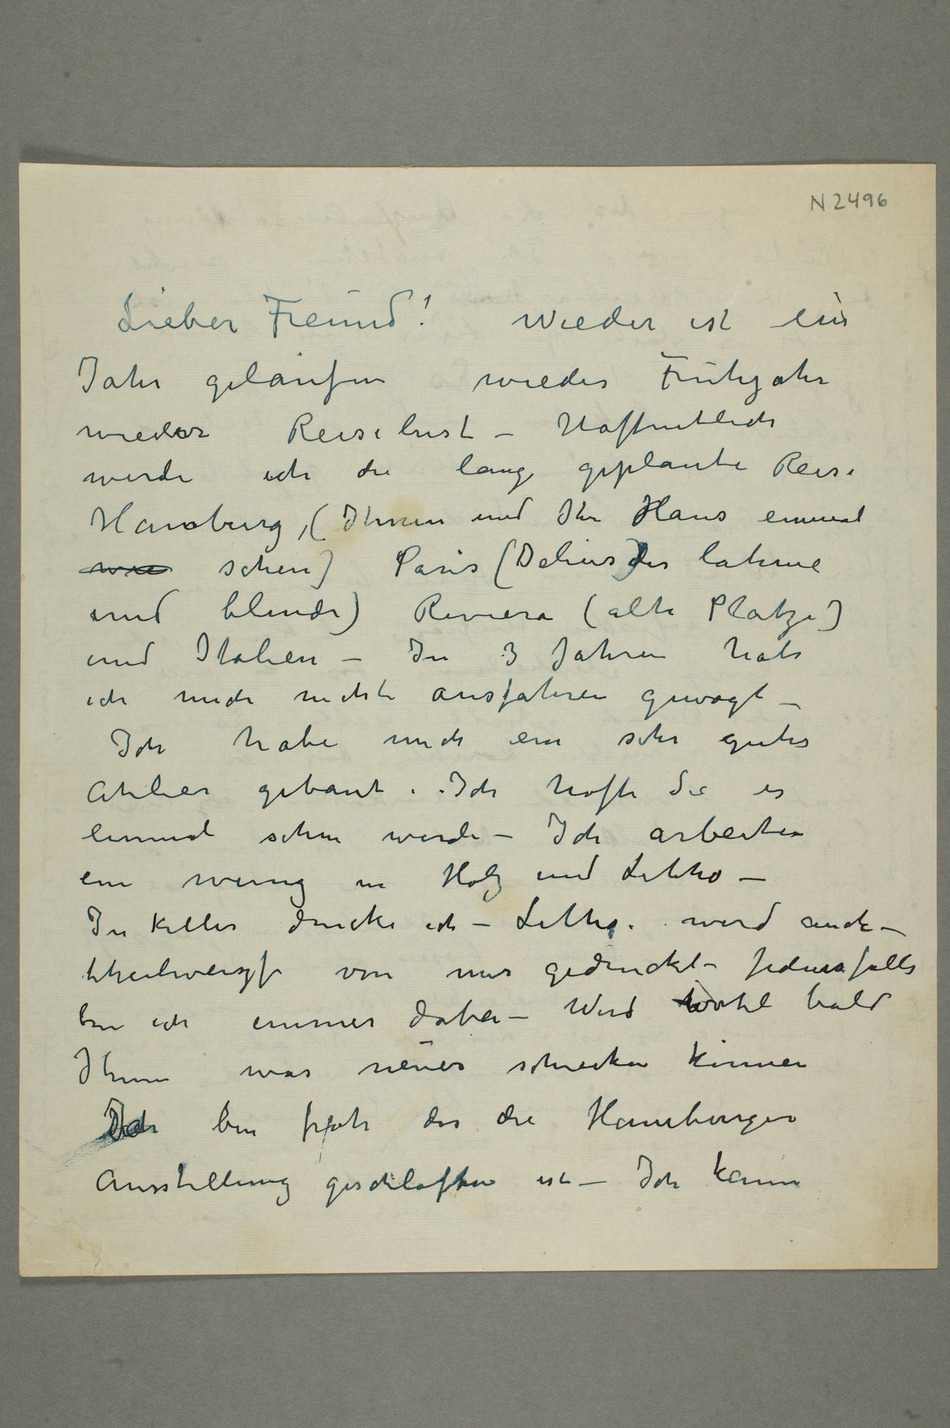 N 2496
Lieber Freund! Wieder ist ein
Jahr gelaufen wieder Frühjahr
wieder Reiselust – Hoffentlich
werde ich die lang geplante Reise
Hamburg, (Ihnen und Ihr Haus einmal
sehen) Paris (Delius) der lahme
und blinde) Riviera (alte Plätze)
und Italien – In 3 Jahren habe
ich mich nicht ausfahren gewagt –
Ich habe mich ein sehr gutes
Atelier gebaut . Ich hoffe Sie es
einmal sehen werde – Ich arbeite
ein wenig in Holz und Litho –
In Keller drucke ich – Litho. wird auch –
theilweise von mir gedruckt – Jedensfalls
bin ich immer dabei – Werd wohl bald
Ihnen was neues schicken können
Ich bin froh das die Hamburger
Ausstellung geschloften ist – Ich kann